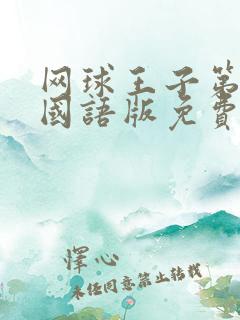 网球王子第
國語版免費
怿心
未经同意禁止转载